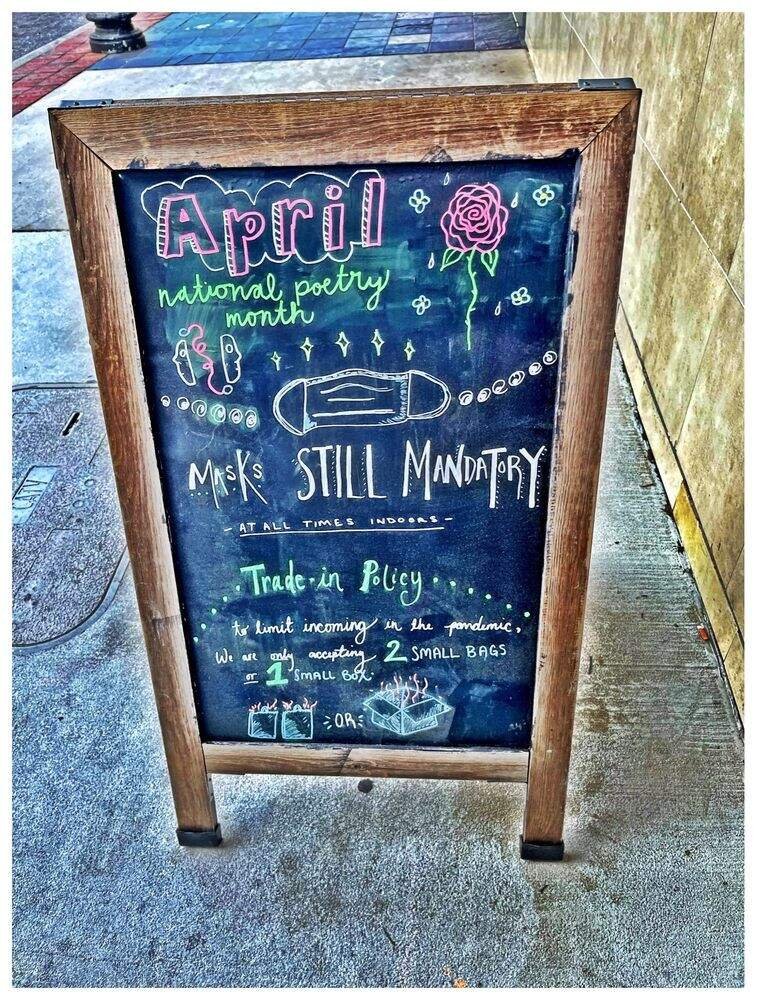 April
national poetry
month
MASKS STILL MANDATORY
- AT ALL TIMES INDOORS -
Trade-in Policy
to limit incoming in the pandemic,
We are only accepting 2 SMALL BAGS
or 1 SMALL BOX.
OR